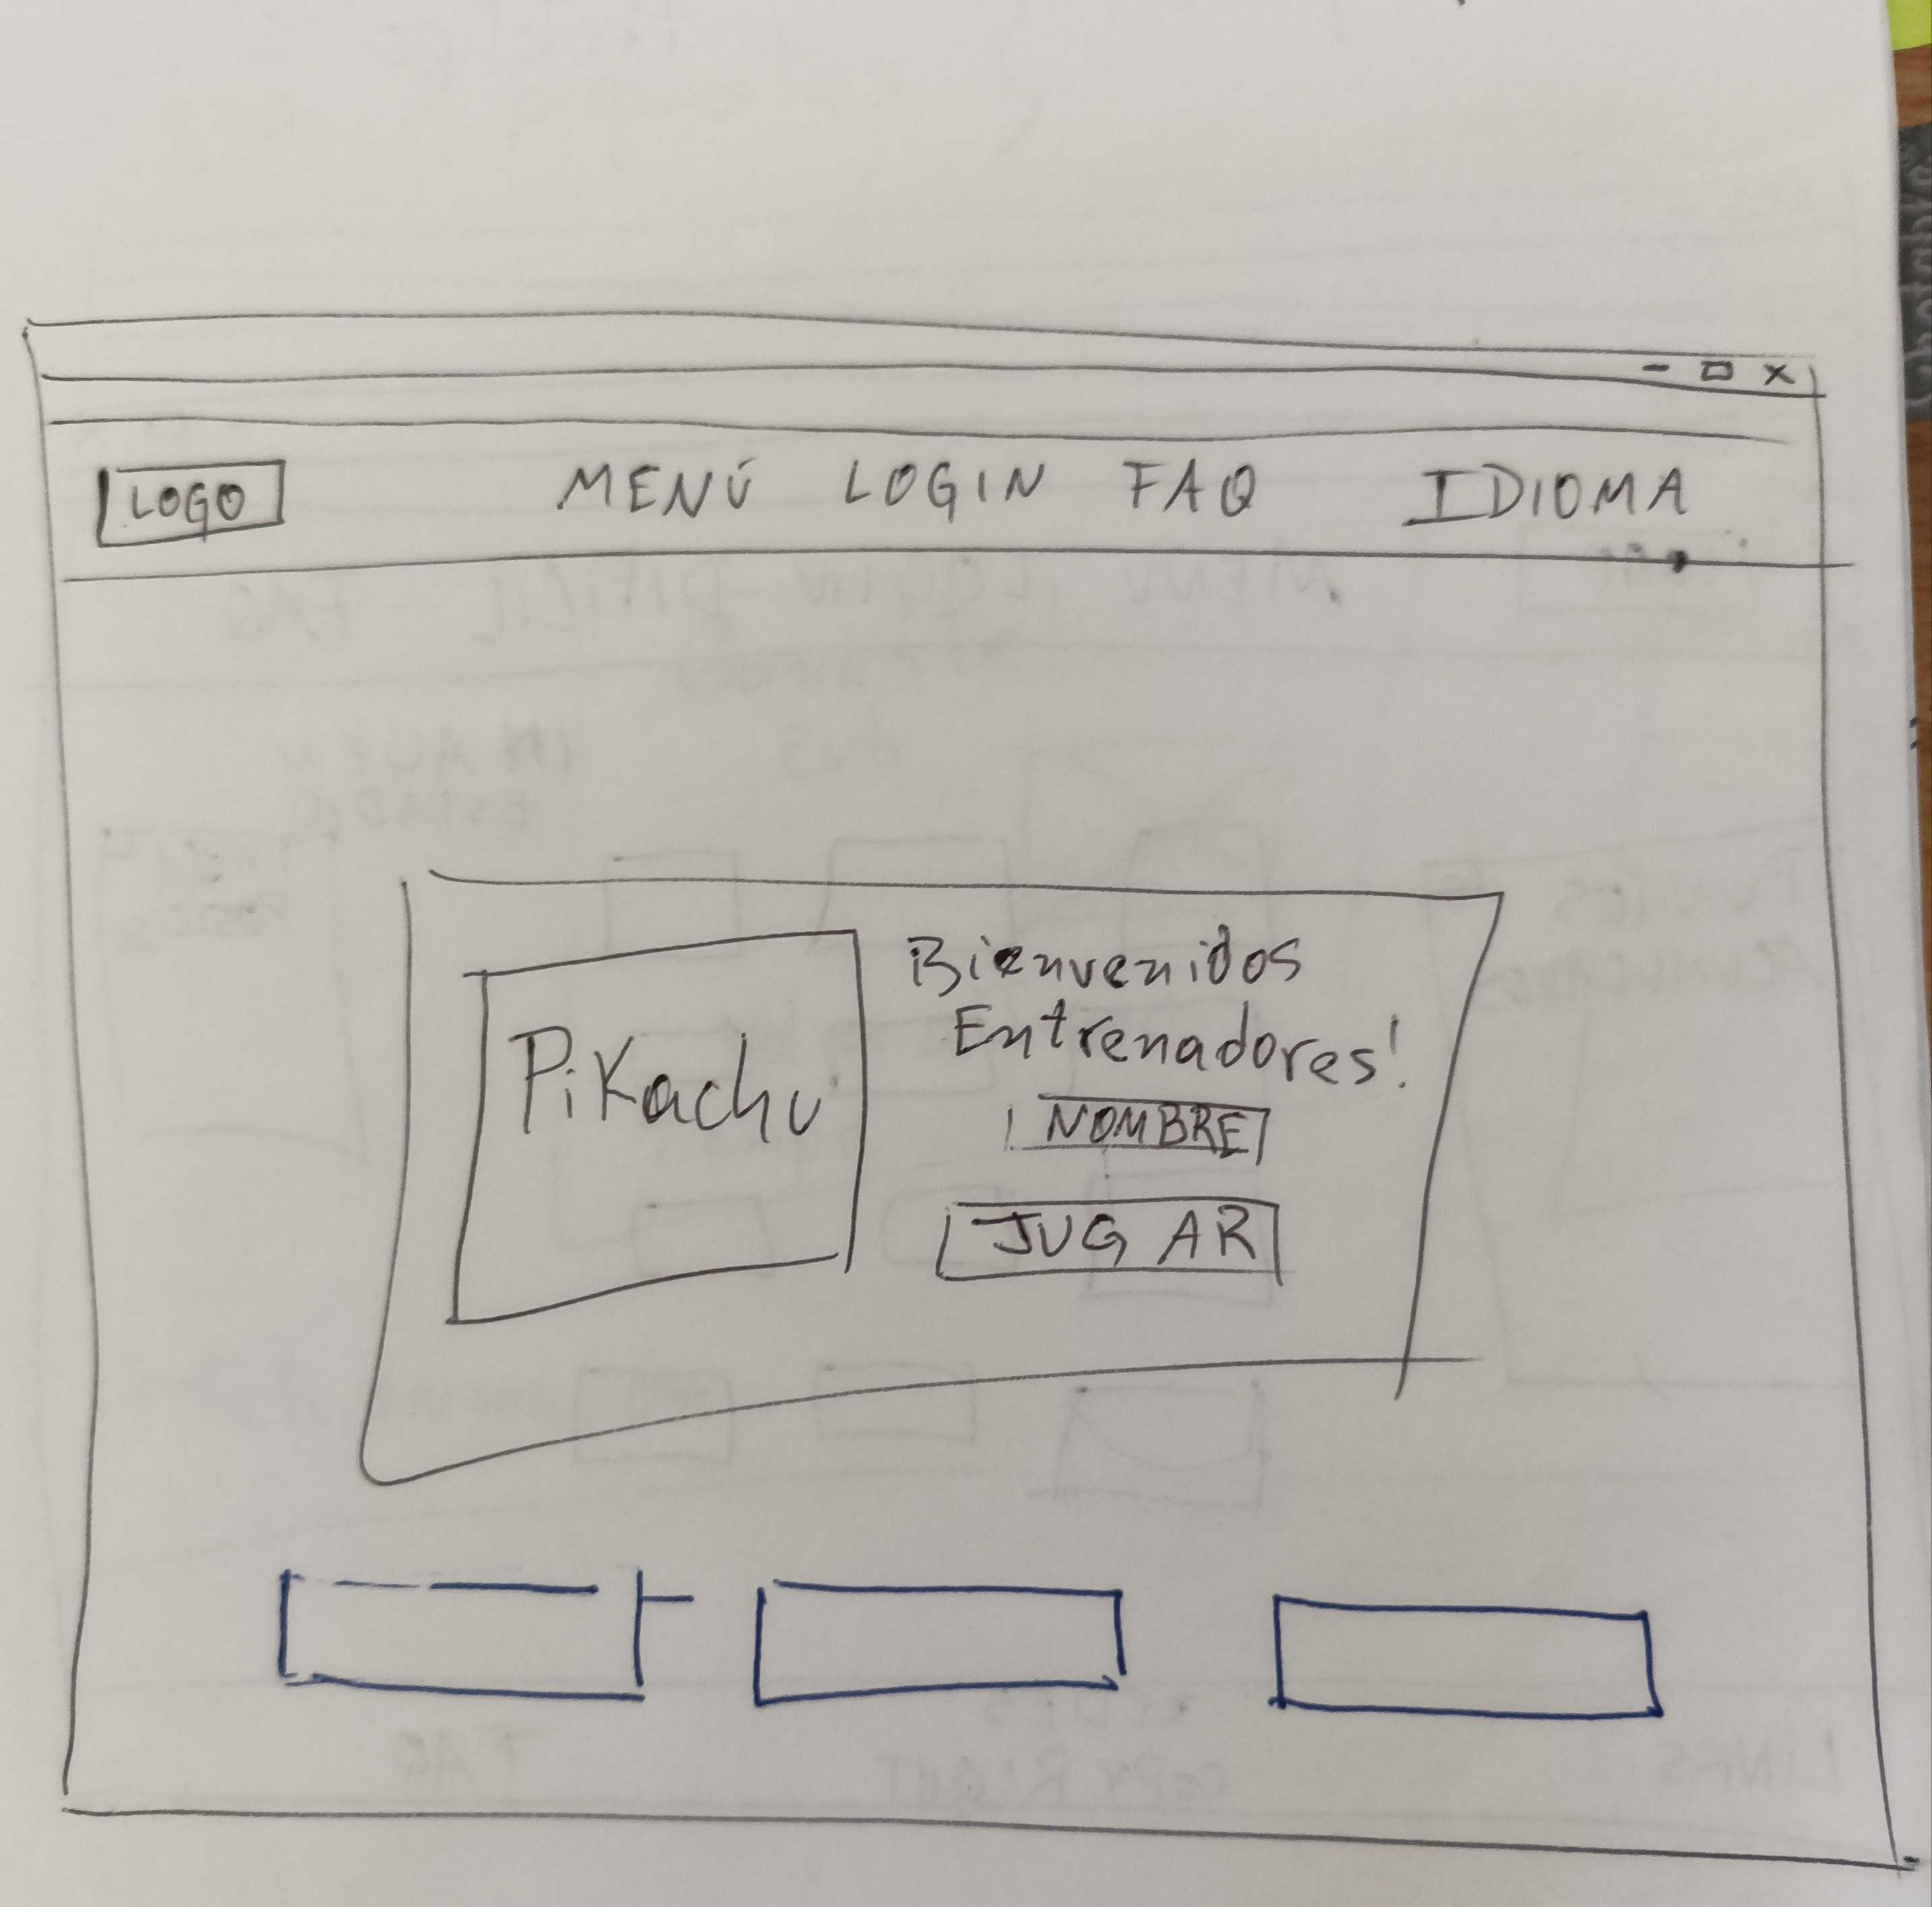 LOGO MENÚ LOGIN FAQ IDIOMA
Pikachu
Bienvenidos
Entrenadores!
NOMBRE
JUGAR